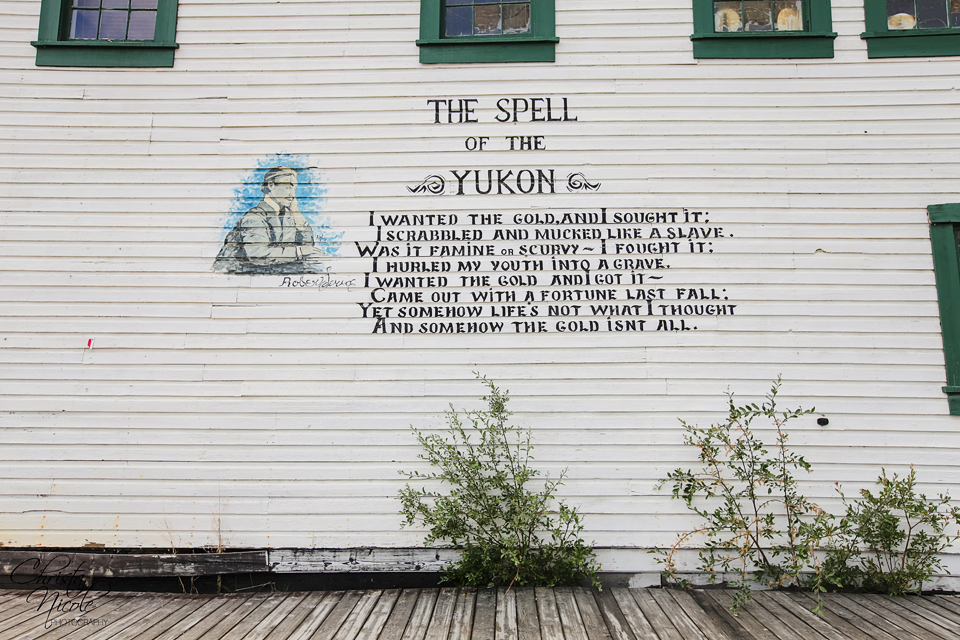 THE SPELL
OF THE
YUKON
I WANTED THE GOLD, AND I SOUGHT IT;
I SCRABBLED AND MUCKED LIKE A SLAVE.
WAS IT FAMINE OR SCURVY~I FOUGHT IT;
I HURLED MY YOUTH INTO A GRAVE.
I WANTED THE GOLD AND I GOT IT~
CAME OUT WITH A FORTUNE LAST FALL;
YET SOMEHOW LIFE'S NOT WHAT I THOUGHT
AND SOMEHOW THE GOLD ISNT ALL.
Nicole
PHOTOGRAPHY